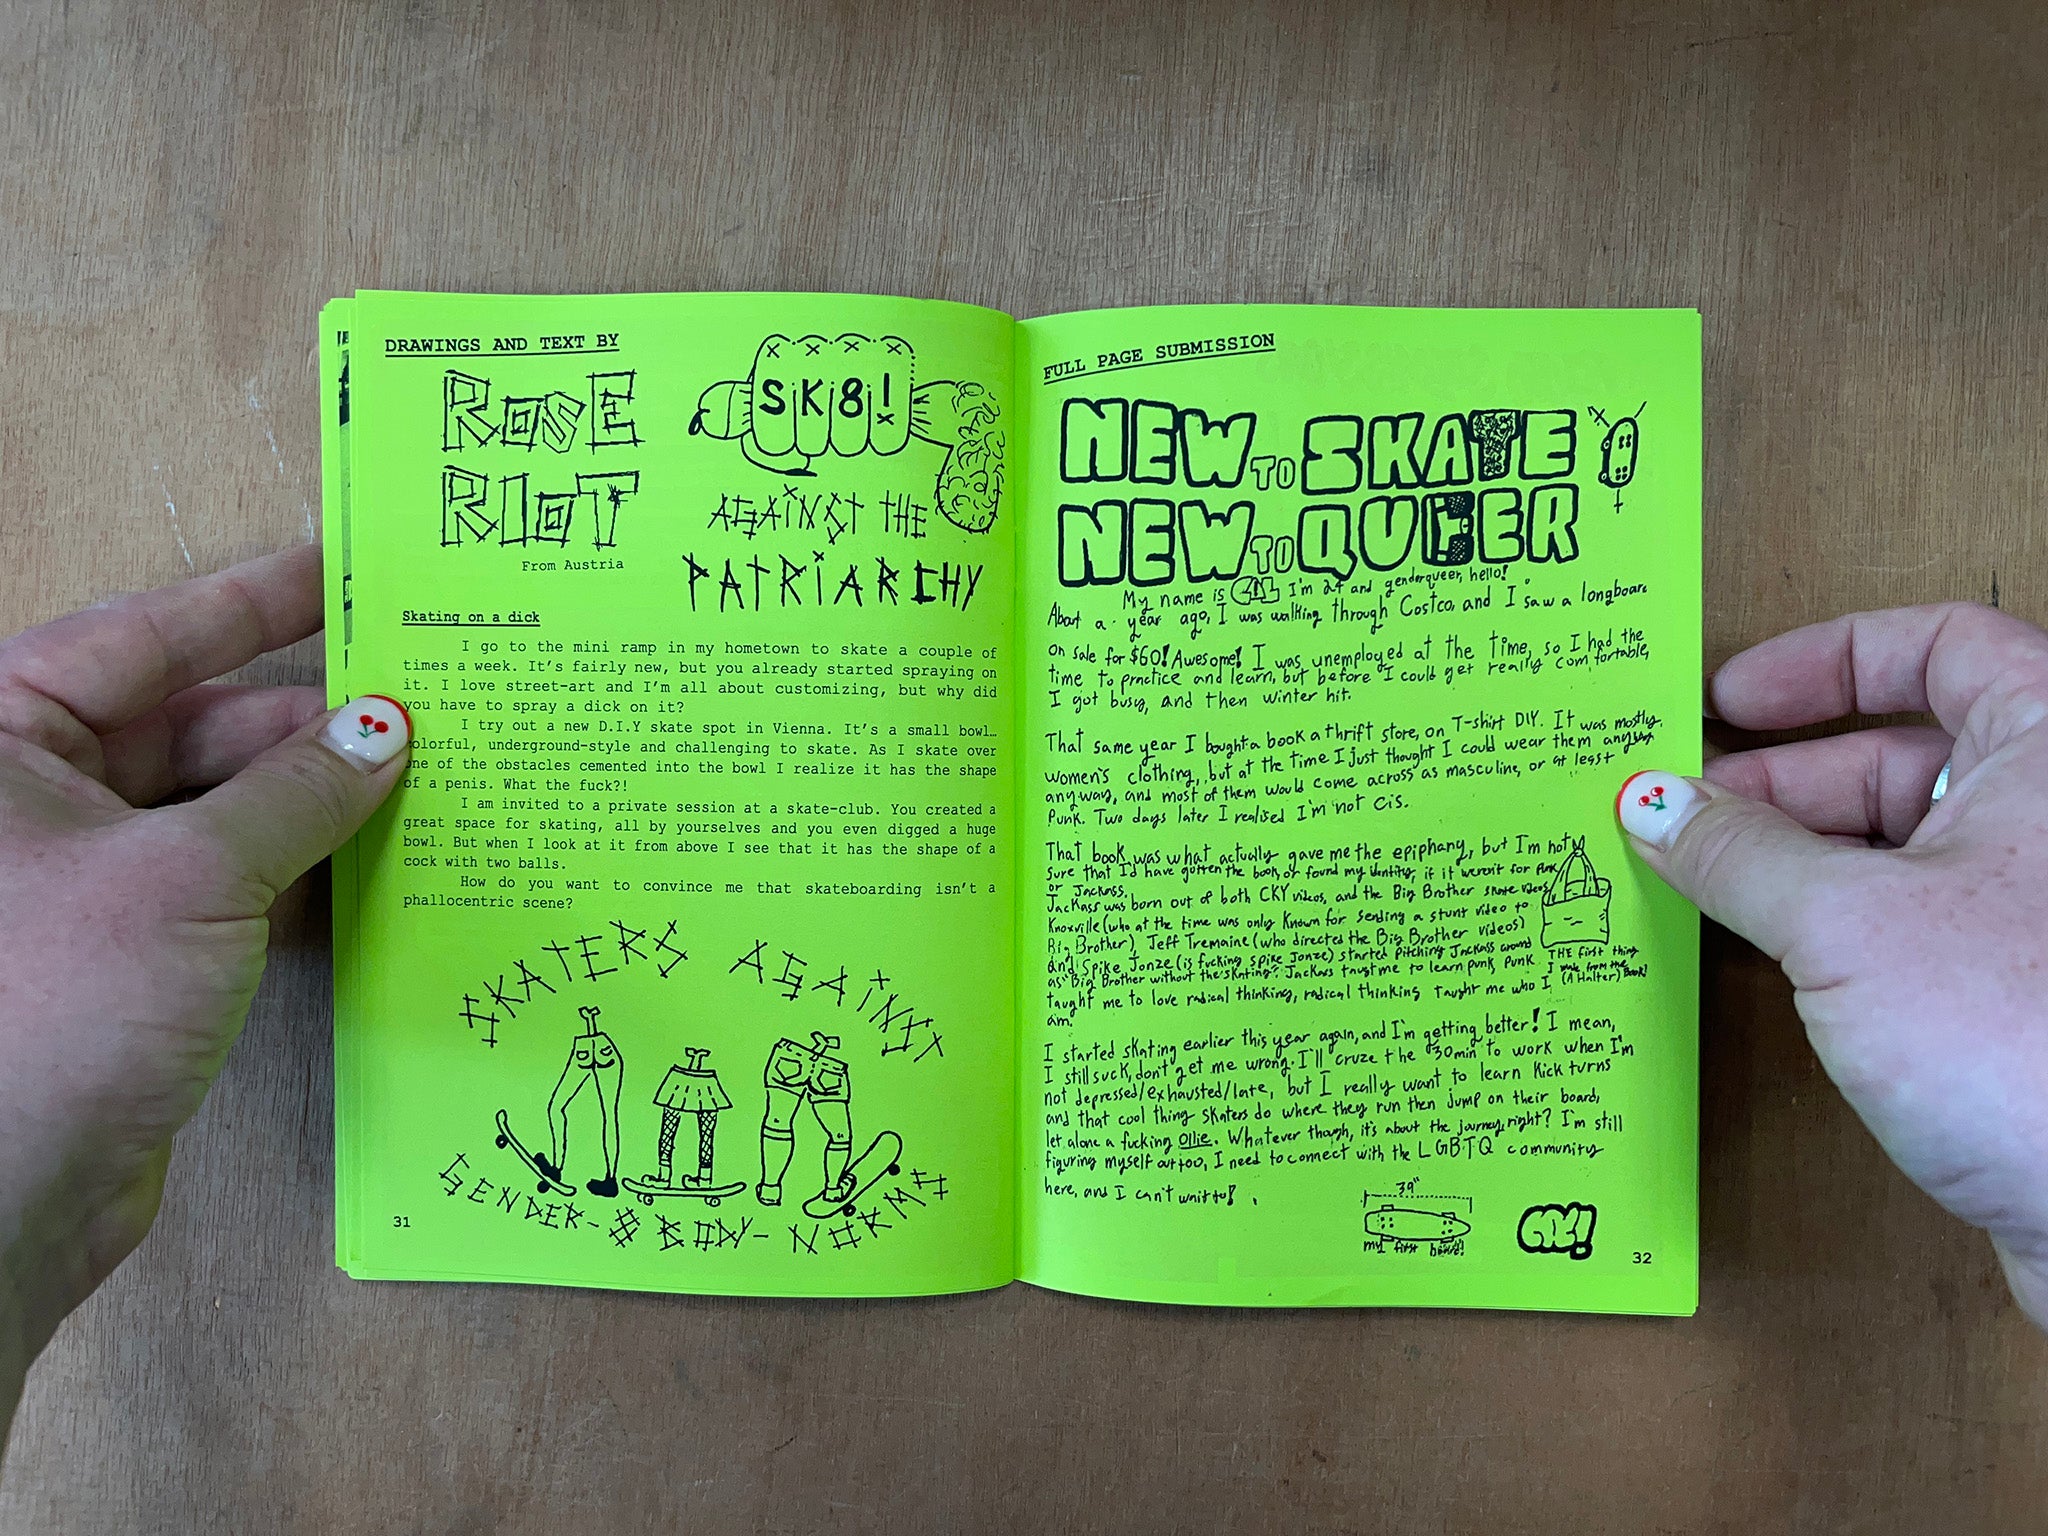 DRAWINGS AND TEXT BY
ROSE
RIOT
From Austria
SK8!
AGAINST THE
PATRIARCHY
Skating on a dick
I go to the mini ramp in my hometown to skate a couple of
times a week. It's fairly new, but you already started spraying on
it. I love street-art and I'm all about customizing, but why did
you have to spray a dick on it?
I try out a new D.I.Y skate spot in Vienna. It's a small bowl…
colorful, underground-style and challenging to skate. As I skate over
one of the obstacles cemented into the bowl I realize it has the shape
of a penis. What the fuck?!
I am invited to a private session at a skate-club. You created a
great space for skating, all by yourselves and you even digged a huge
bowl. But when I look at it from above I see that it has the shape of a
cock with two balls.
How do you want to convince me that skateboarding isn't a
phallocentric scene?
SKATERS AGAINST
GENDER- & BODY- NORMS
31
FULL PAGE SUBMISSION
NEW TO SKATE
NEW TO QUEER
My name is CAL I'm 24 and genderqueer, hello!
About a year ago, I was walking through Costco, and I saw a longboard
on sale for $60! Awesome! I was unemployed at the time, so I had the
time to practice and learn, but before I could get really comfortable,
I got busy, and then winter hit.
That same year I bought a book a thrift store, on T-shirt DIY. It was mostly
women's clothing, but at the time I just thought I could wear them anyway
anyway, and most of them would come across as masculine, or at least
Punk. Two days later I realised I'm not cis.
That book was what actually gave me the epiphany, but I'm not
sure that I'd have gotten the book, or found my identity, if it weren't for punk
or Jackass.
Jackass was born out of both CKY videos, and the Big Brother skate videos
Knoxville (who at the time was only known for sending a stunt video to
Big Brother), Jeff Tremaine (who directed the Big Brother videos)
and Spike Jonze (is fucking Spike Jonze) started pitching Jackass around
as "Big Brother without the skating". Jackass taught me to learn punk, punk
taught me to love radical thinking, radical thinking taught me who I
am.
THE first thing
I made from the
(A Halter) Book!
I started skating earlier this year again, and I'm getting better! I mean,
I still suck, don't get me wrong. I'll cruze the 30min to work when I'm
not depressed/exhausted/late, but I really want to learn kick turns
and that cool thing skaters do where they run then jump on their board,
let alone a fucking Ollie. Whatever though, it's about the journey, right? I'm still
figuring myself out too, I need to connect with the LGBTQ community
here, and I can't wait to!
39"
my first board!
32